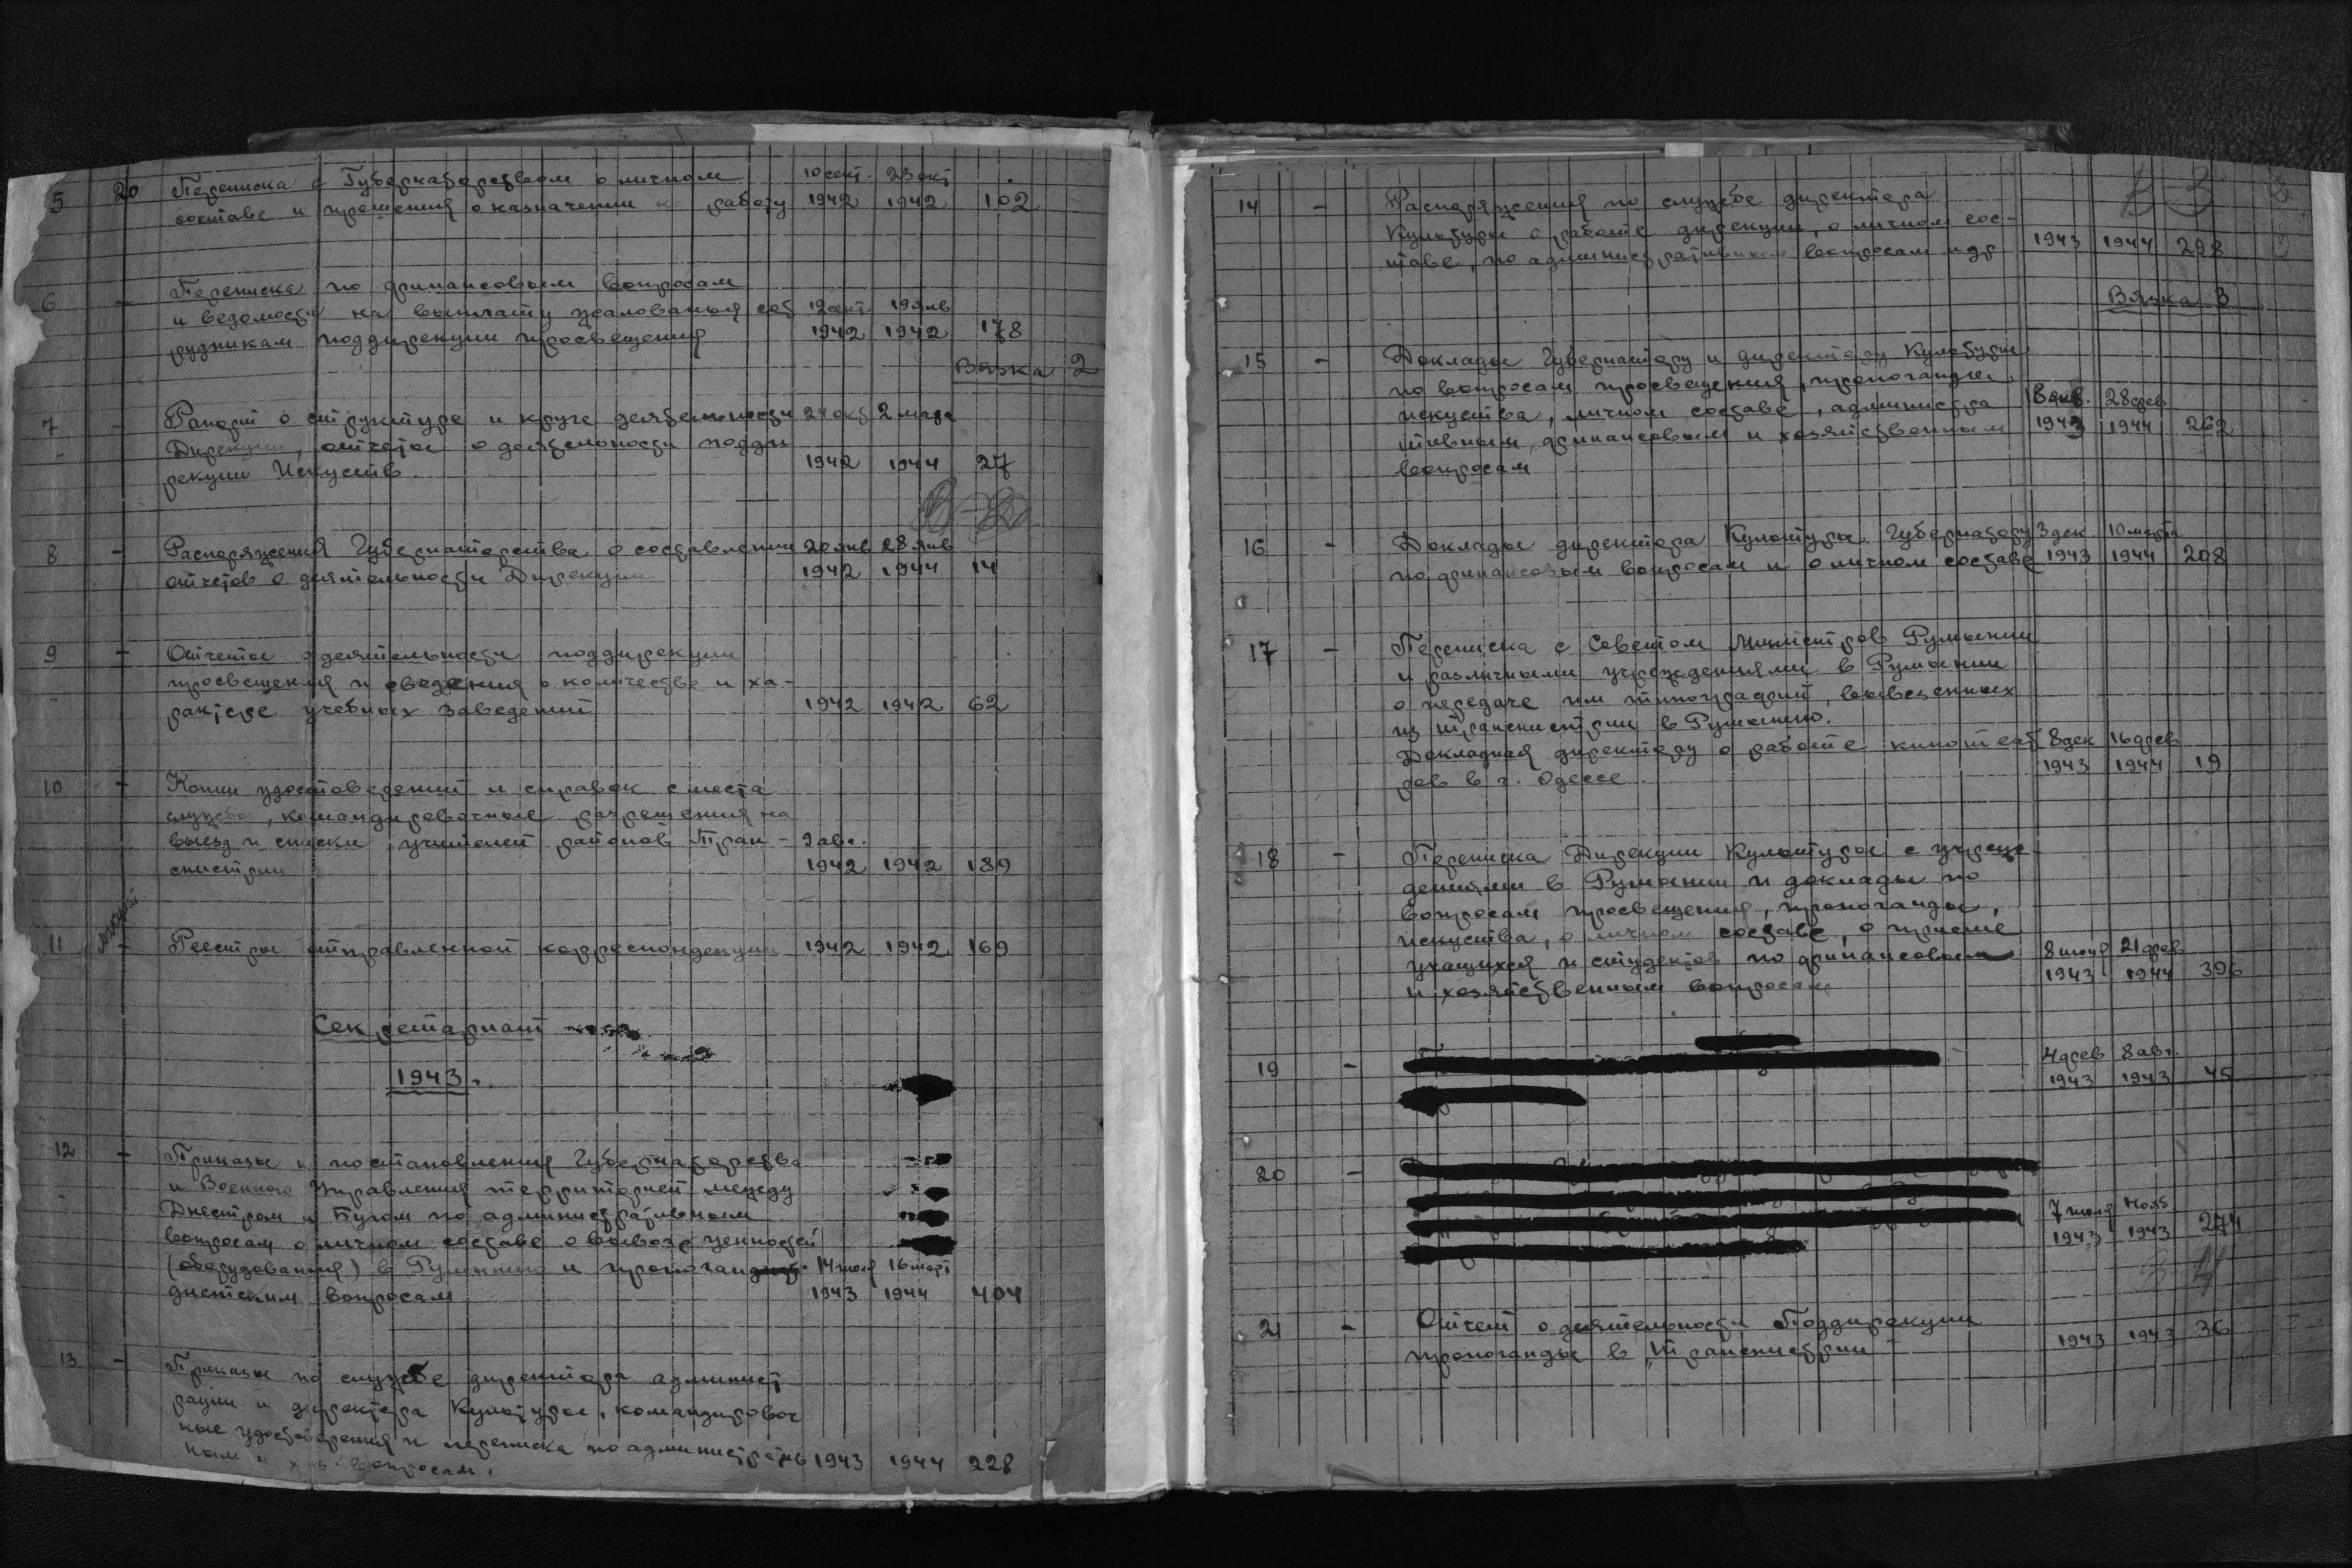 5 20 Переписка с Губернаторством о личном 10 сент. 23 окт
составе и прошения о назначении на работу 1942 1942 102
6 - Переписка по финансовым вопросам
и ведомости на выплату жалованья сот 12 сент. 19 янв
рудникам поддирекции просвещения 1942 1942 178
Вязка 2
7 - Рапорт о структуре и круге деятельности 24 окт 2 марта
Дирекции, отчеты о деятельности подди
рекции Искуств. 1942 1944 27
8 - Распоряжения Губернаторства о составлении 20 янв 28 янв
отчетов о деятельности Дирекции 1942 1944 14
9 - Отчеты о деятельности поддирекции
просвещения и сведения о количестве и ха-
рактере учебных заведений 1942 1942 62
10 - Копии удостоверений и справок с места
службы, командировочные разрешения на
выезд и списки учителей районов Тран- 9 авг.
снистрии 1942 1942 189
11 - Реестры отправленной корреспонденции 1942 1942 169
Секретариат
1943.
12 - Приказы и постановления Губернаторства
и Военного Управления территорией между
Днестром и Бугом по административным
вопросам о личном составе о вывозе ценностей
(оборудования) в Румынию и пропоган 14 июля 16 март
дистским вопросам 1943 1944 404
13 - Приказы по службе директора админист
рации и директора Культуры, командировоч
ные удостоверения и переписка по административ 1943 1944 228
ным и хоз. вопросам.
14 - Распоряжения по службе директора
Культуры о работе дирекции, о личном сос-
таве, по административным вопросам и др 1943 1944 298
Вязка 3
15 - Доклады Губернатору и директору Культуры
по вопросам просвещения, пропоганды
искуства, личном составе, администра 18 янв. 28 фев
тивным, финансовым и хозяйственным 1943 1944 262
вопросам
16 - Доклады директора Культуры Губернатору 3 дек. 10 марта
по финансовым вопросам и о личном составе 1943 1944 208
17 - Переписка с Советом Министров Румынии
и различными учреждениями в Румынии
о передаче им типографий, вывезенных
из Транснистрии в Румынию.
Докладная директору о работе кинотеат 8 дек 16 фев
ров в г. Одессе. 1943 1944 19
18 - Переписка Дирекции Культуры с учреж-
дениями в Румынии и доклады по
вопросам просвещения, пропоганды,
искуства, о личном составе, о приеме
учащихся и студентов по финансовым 8 июня 21 фев
и хозяйственным вопросам 1943 1944 396
19 - 4 фев 8 авг.
1943 1943 45
20 - 7 июля нояб
1943 1943 274
21 - Отчет о деятельности Поддирекции
пропоганды в "Транснистрии" 1943 1943 36